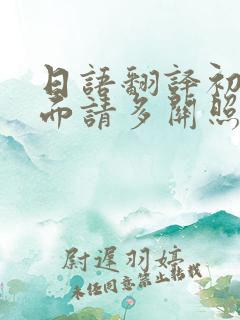 日語翻譯初
而請多關照
尉遲羽婷
未經同意禁止轉載